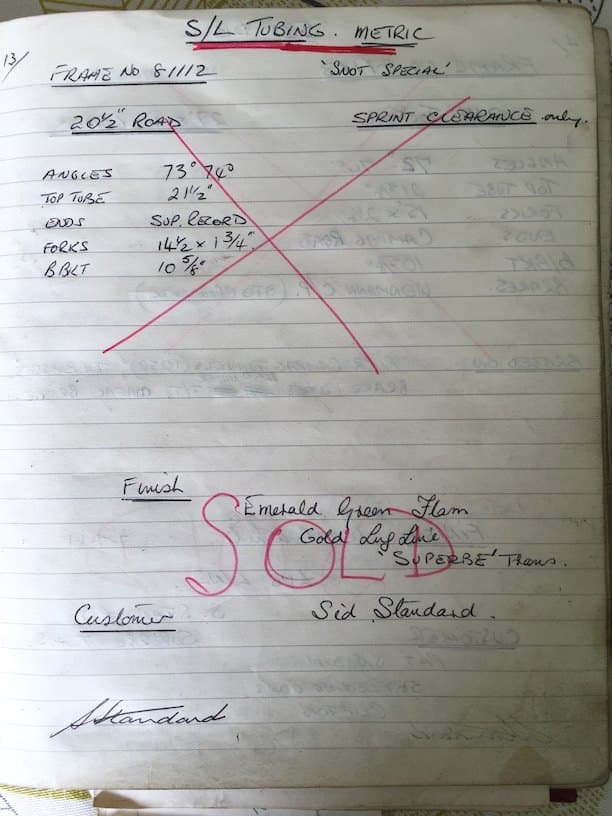 S/L TUBING. METRIC
13/
FRAME NO 81112 'SNOT SPECIAL'
20½" ROAD SPRINT CLEARANCE only.
ANGLES 73° 74°
TOP TUBE 21½"
ENDS SUP. RECORD
FORKS 14½ x 1¾"
B BKT 10⅝"
Finish Emerald Green Flam
Gold Lug Line
'SUPERBE' Trans.
SOLD
Customer Sid Standard.
SStandard